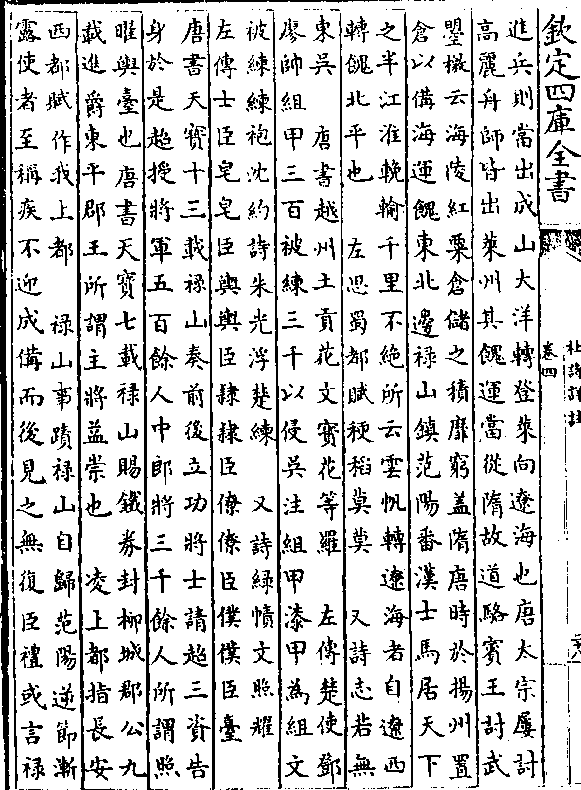 欽定四庫全書
杜詩詳註
卷四
進兵則當出成山大洋轉登萊向遼海也唐太宗屢討
高麗舟師皆出萊州其餽運當從隋故道駱賓王討武
曌檄云海陵紅粟倉儲之積靡窮蓋隋唐時於揚州置
倉以備海運餽東北邊祿山鎮范陽番漢士馬居天下
之半江淮輓輸千里不絕所云雲帆轉遼海者自遼西
轉餽北平也　左思蜀都賦稉稻莫莫　又詩志若無
東吳　唐書越州土貢花文寶花等羅　左傳楚使鄧
廖帥組甲三百被練三千以侵吳注組甲漆甲為組文
被練練袍沈約詩朱光浮楚練　又詩綠幘文照耀
左傳士臣皂皂臣輿輿臣隸隸臣僚僚臣僕僕臣臺
唐書天寶十三載祿山奏前後立功將士請超三資告
身於是超授將軍五百餘人中郎將三千餘人所謂照
睢與臺也唐書天寶七載祿山賜鐵券封柳城郡公九
載進爵東平郡王所謂主將益崇也　凌上都指長安
西都賦作我上都　祿山事蹟祿山自歸范陽逆節漸
露使者至稱疾不迎成備而後見之無復臣禮或言祿